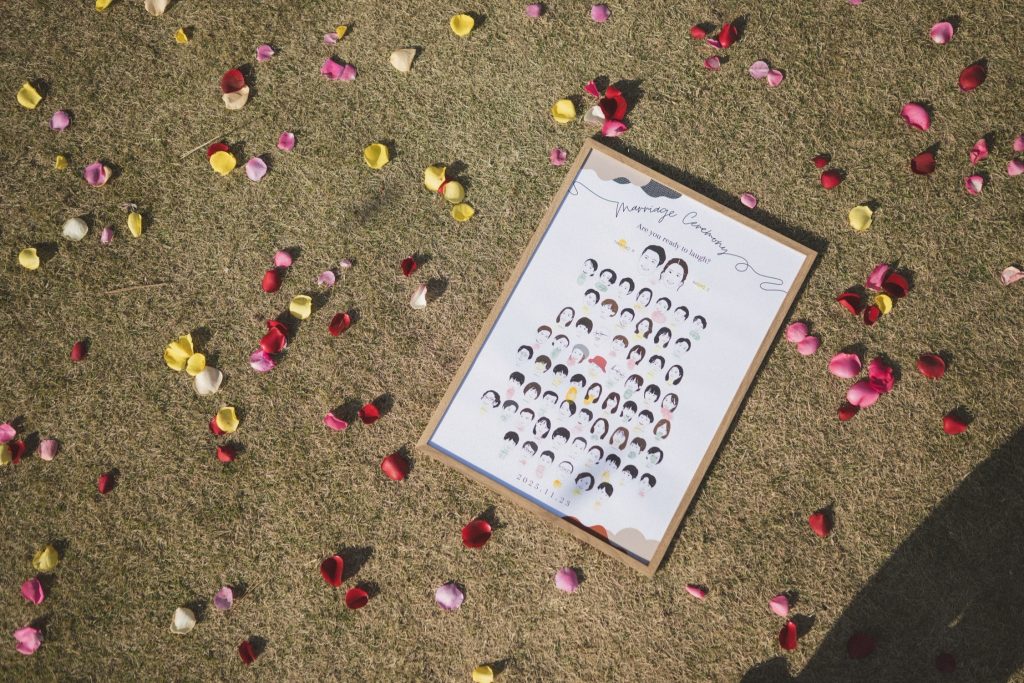 Marriage Ceremony
Are you ready to laugh?
2025.11.23